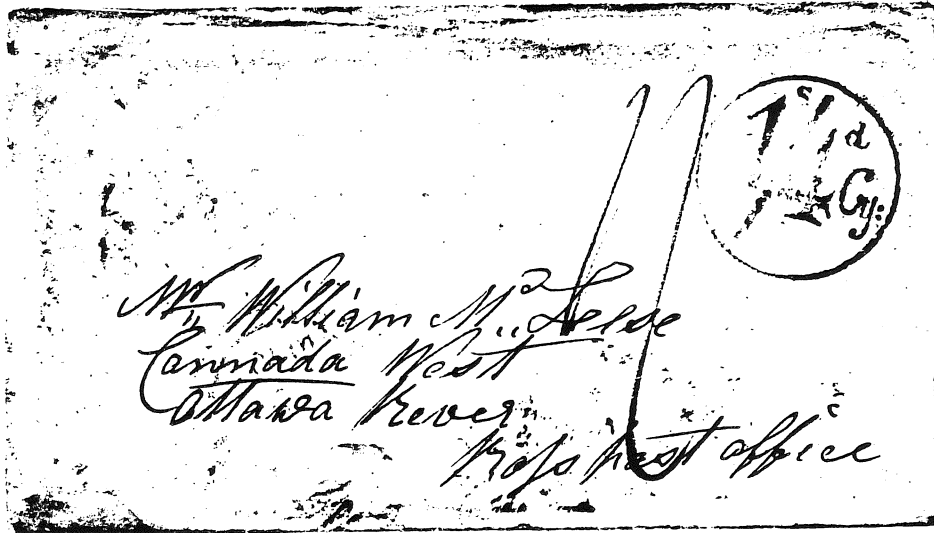 1s/1d
Cy:
Mr William Mc Leese
Cannada West
Ottawa Rever
Ross post office